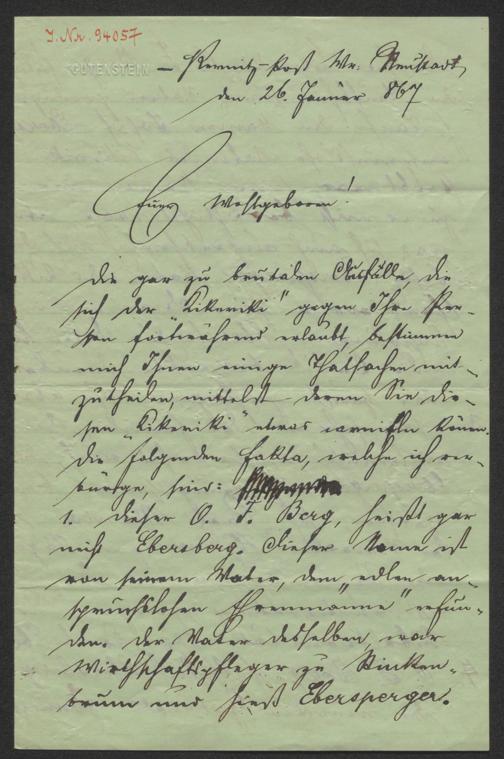 J. Nr. 94057
GUTENSTEIN
– Pernitz-Post Wr: Neustadt,
den 26. Januer 867
Euer Wohlgeboren!
Die gar zu brutalen Ausfälle, die
sich der „Kikeriki" gegen Ihre Per-
son fortwährend erlaubt, bestimmen
mich Ihnen einige Thatsachen mit-
zutheilen, mittelst deren Sie die-
sen „Kikeriki" etwas können.
Die folgenden Fakta, welche ich ver-
bürge, sind:
1. Dieser O. F. Berg, heißt gar
nicht Ebersberg. Dieser Name ist
von seinem Vater, dem „edlen an-
spruchslosen Ehrenmanne" erfun-
den. Der Vater desselben war
Wirthschaftspfleger zu Stinken-
brunn und hieß Ebersperger.